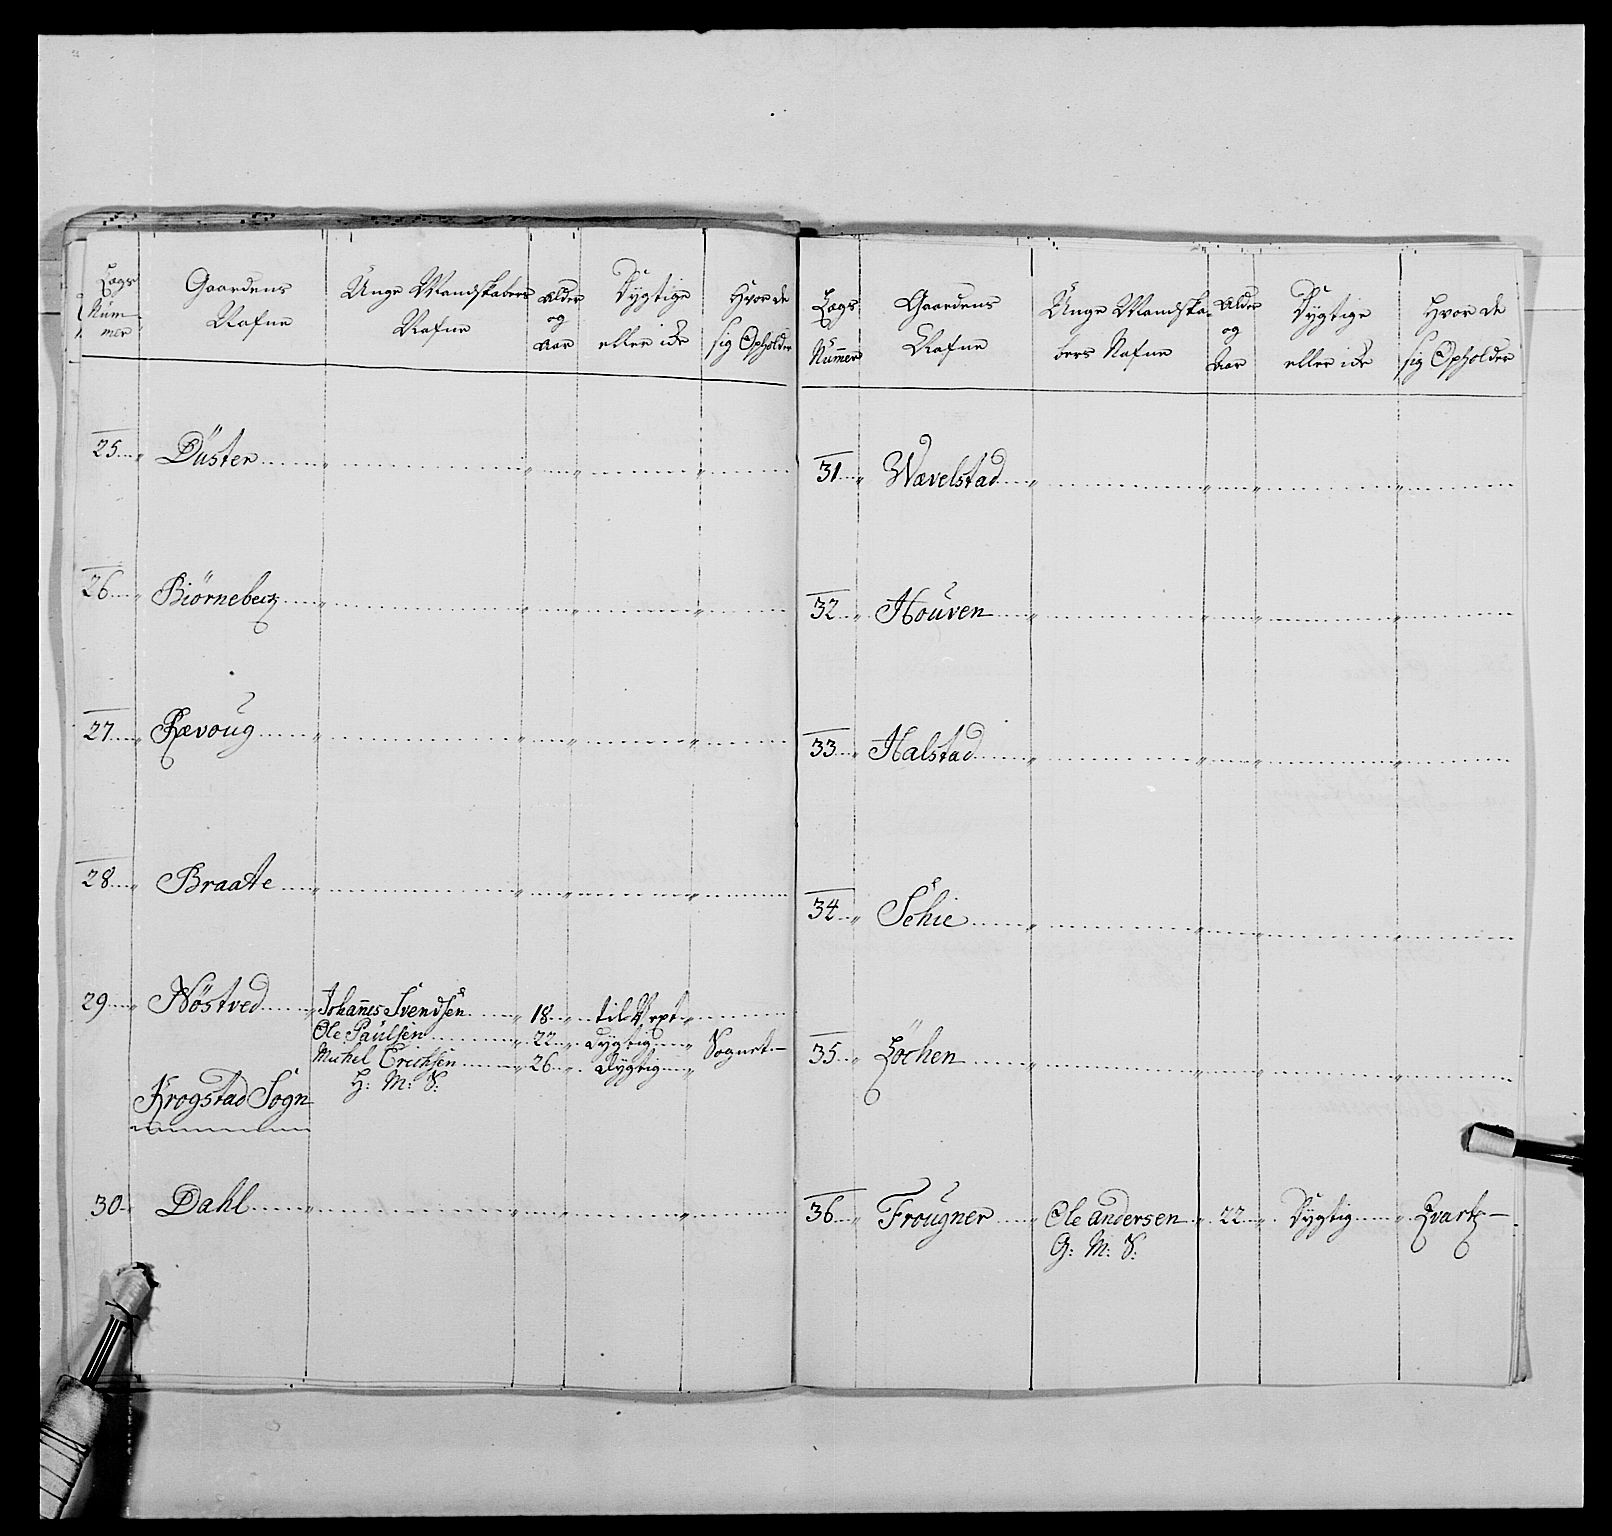 Lægs Nummer | Gaardens Nafne | Unge Mandskabers Nafne | Alder og Aar | Dygtige eller icke | Hvor de sig Opholder
25 Düster
26 Biørneberg
27 Rævoug
28 Braate
29 Nöstved Johannes Svendsen 18 til Vext
Ole Paulsen 22 Dygtig
Michel Erichsen 26 Dygtig Sognet
H: M: S:
Krogstad Sogn
30 Dahl
Lægs Nummer | Gaardens Nafne | Unge Mandskabers Nafne | Alder og Aar | Dygtige eller icke | Hvor de sig Opholder
31 Wævelstad
32 Houven
33 Halstad
34 Schie
35 Løchen
36 Frougner Ole Andersen 22 Dygtig Qvart
G: M: S: